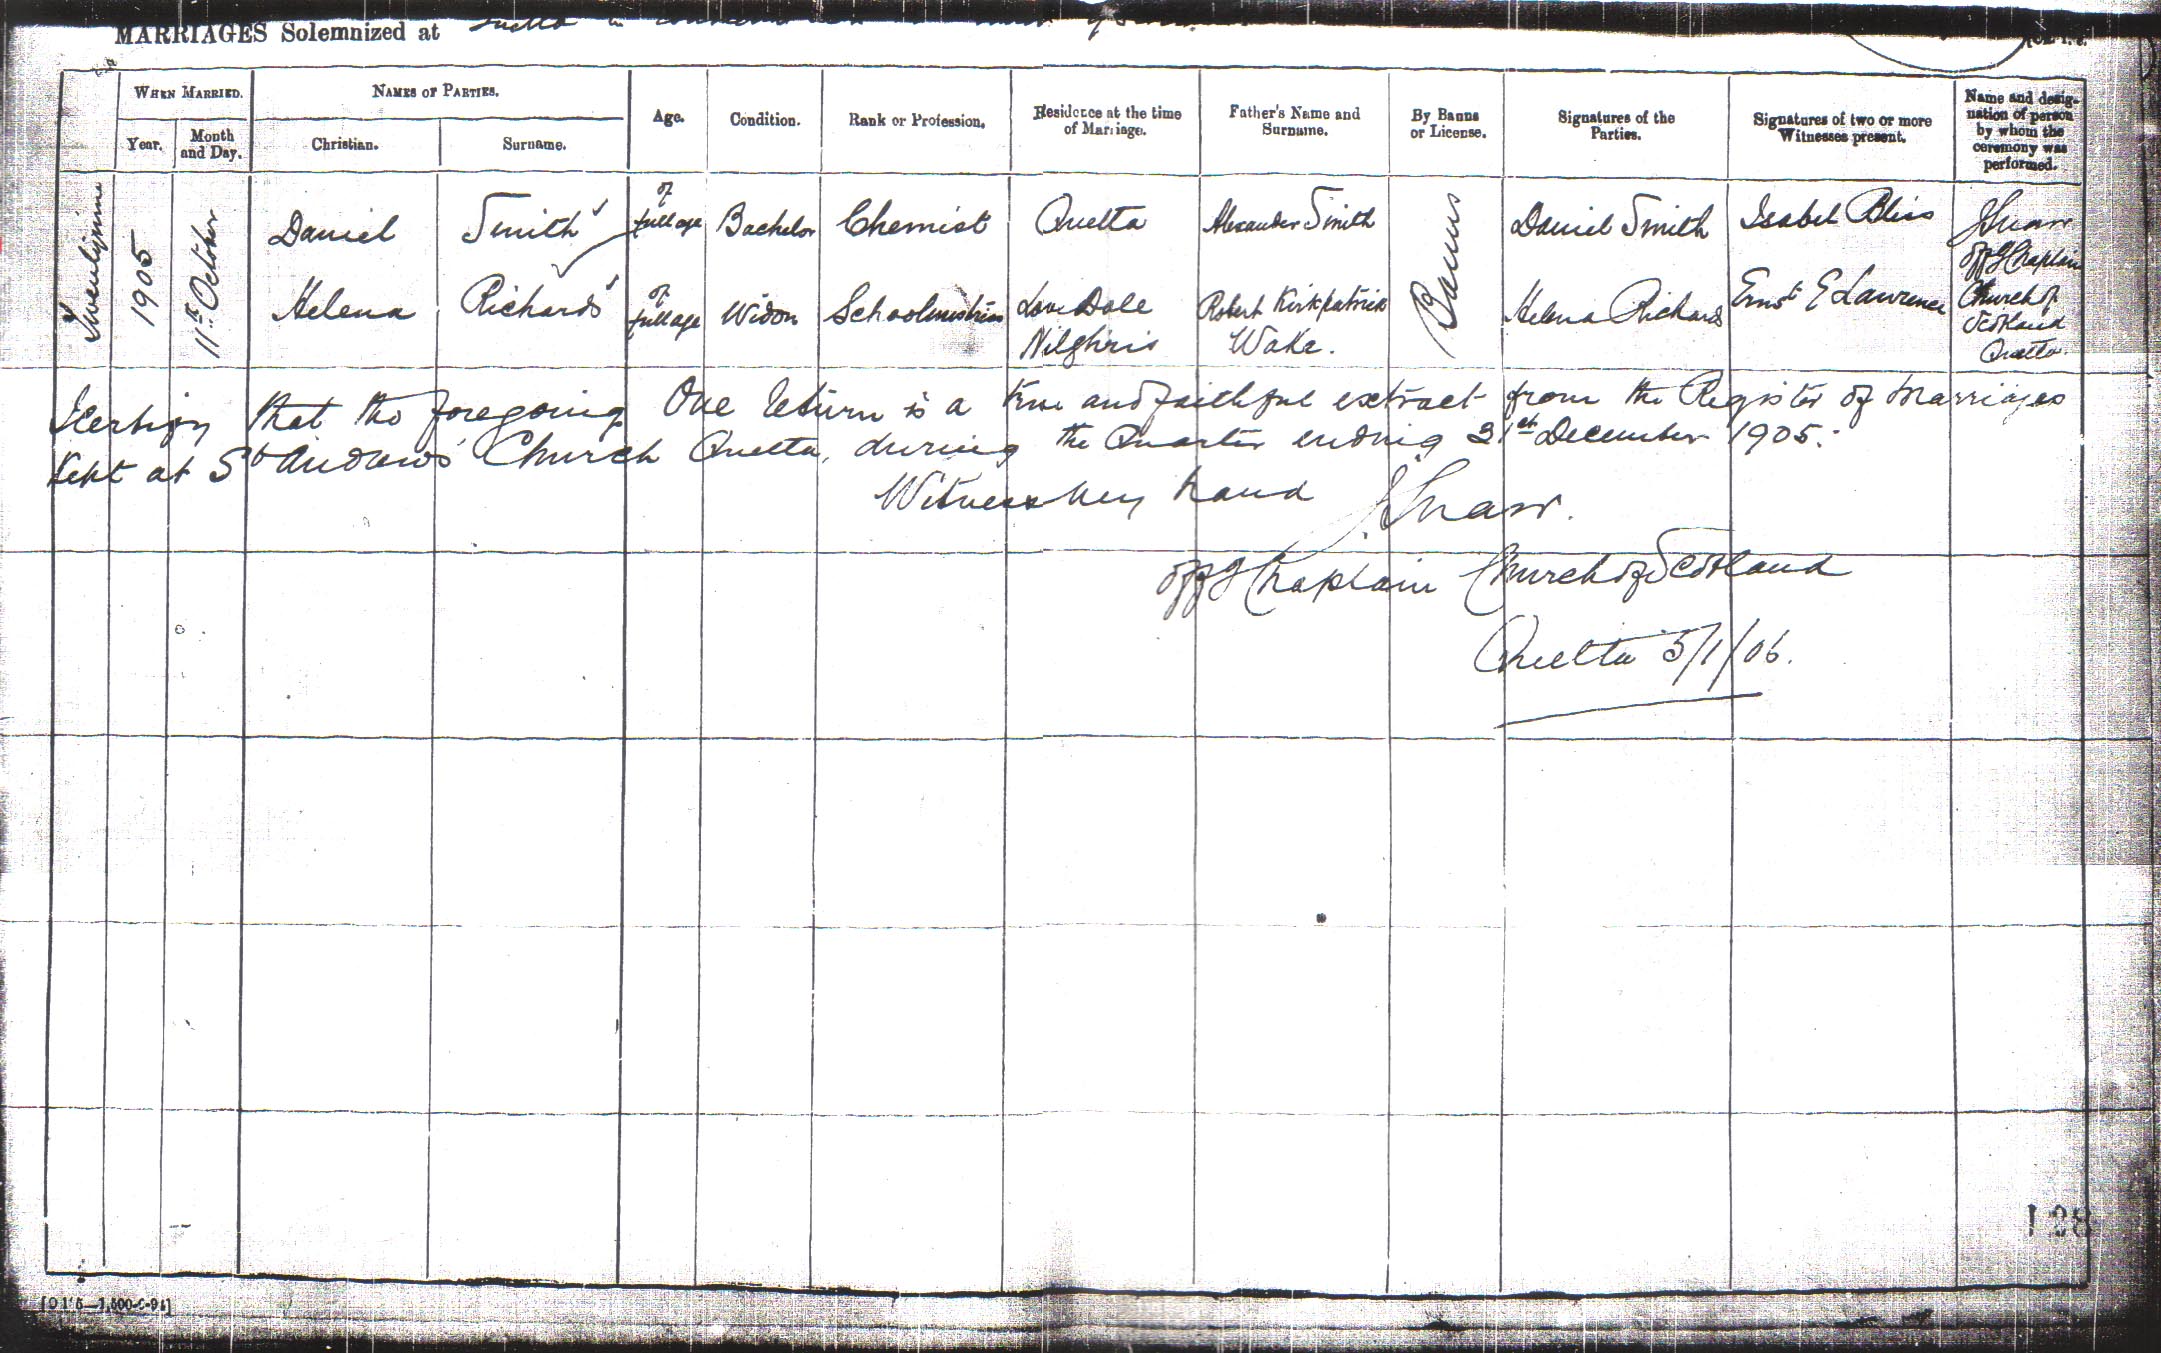 MARRIAGES Solemnized at Quetta in
WHEN MARRIED.
NAMES OF PARTIES.
Year.
Month and Day.
Christian.
Surname.
Age.
Condition.
Rank or Profession.
Residence at the time of Marriage.
Father's Name and Surname.
By Banns or License.
Signatures of the Parties.
Signatures of two or more Witnesses present.
Name and designation of person by whom the ceremony was performed.
Twentynine
1905
11th October
Daniel Smith of full age Bachelor Chemist Quetta Alexander Smith Banns Daniel Smith Isabel Bliss
Helena Richards of full age Widow Schoolmistress Love Dale Nilghiris Robert Kirkpatrick Wake. Helena Richards Ernst E Lawrence
offg Chaplain
Church of
Scotland
Quetta.
I certify that the foregoing One return is a true and faithful extract from the Register of Marriages
Kept at St Andrew's Church Quetta, during the Quarter ending 31st December 1905.
Witness my hand
offg Chaplain Church of Scotland
Quetta 5/1/06.
128